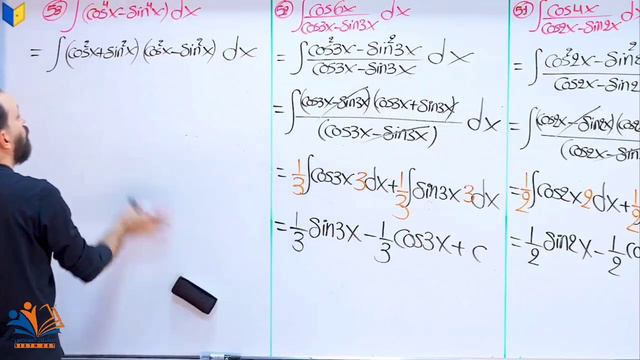 53 ∫(cos⁴x-sin⁴x)dx
= ∫(cos²x+sin²x)(cos²x-sin²x) dx
52 ∫ cos6x / cos3x-sin3x dx
= ∫ cos²3x-sin²3x / cos3x-sin3x dx
= ∫ (cos3x-sin3x)(cos3x+sin3x) / (cos3x-sin3x) dx
= 1/3 ∫cos3x 3dx + 1/3 ∫sin3x 3dx
= 1/3 sin3x - 1/3 cos3x + c
51 ∫ cos4x / cos2x-sin2x dx
= ∫ cos²2x-sin²2 / cos2x-sin2
= ∫ (cos2x-sin2x)(co / (cos2x-sin
= 1/2 ∫cos2x 2dx + 1/2
= 1/2 sin2x - 1/2 co